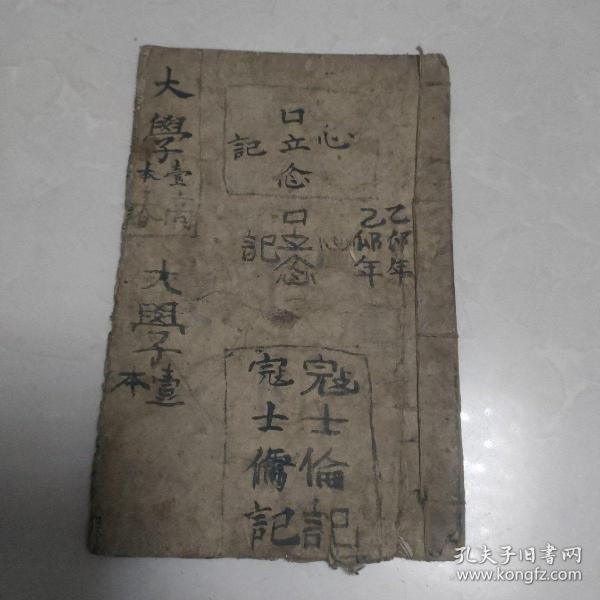 乙卯年
乙卯年
心
口立念
記
心
口立念
記
冦士倫記
冦士儒記
大學壹本
大學壹本
孔夫子旧书网
www.kongfz.com